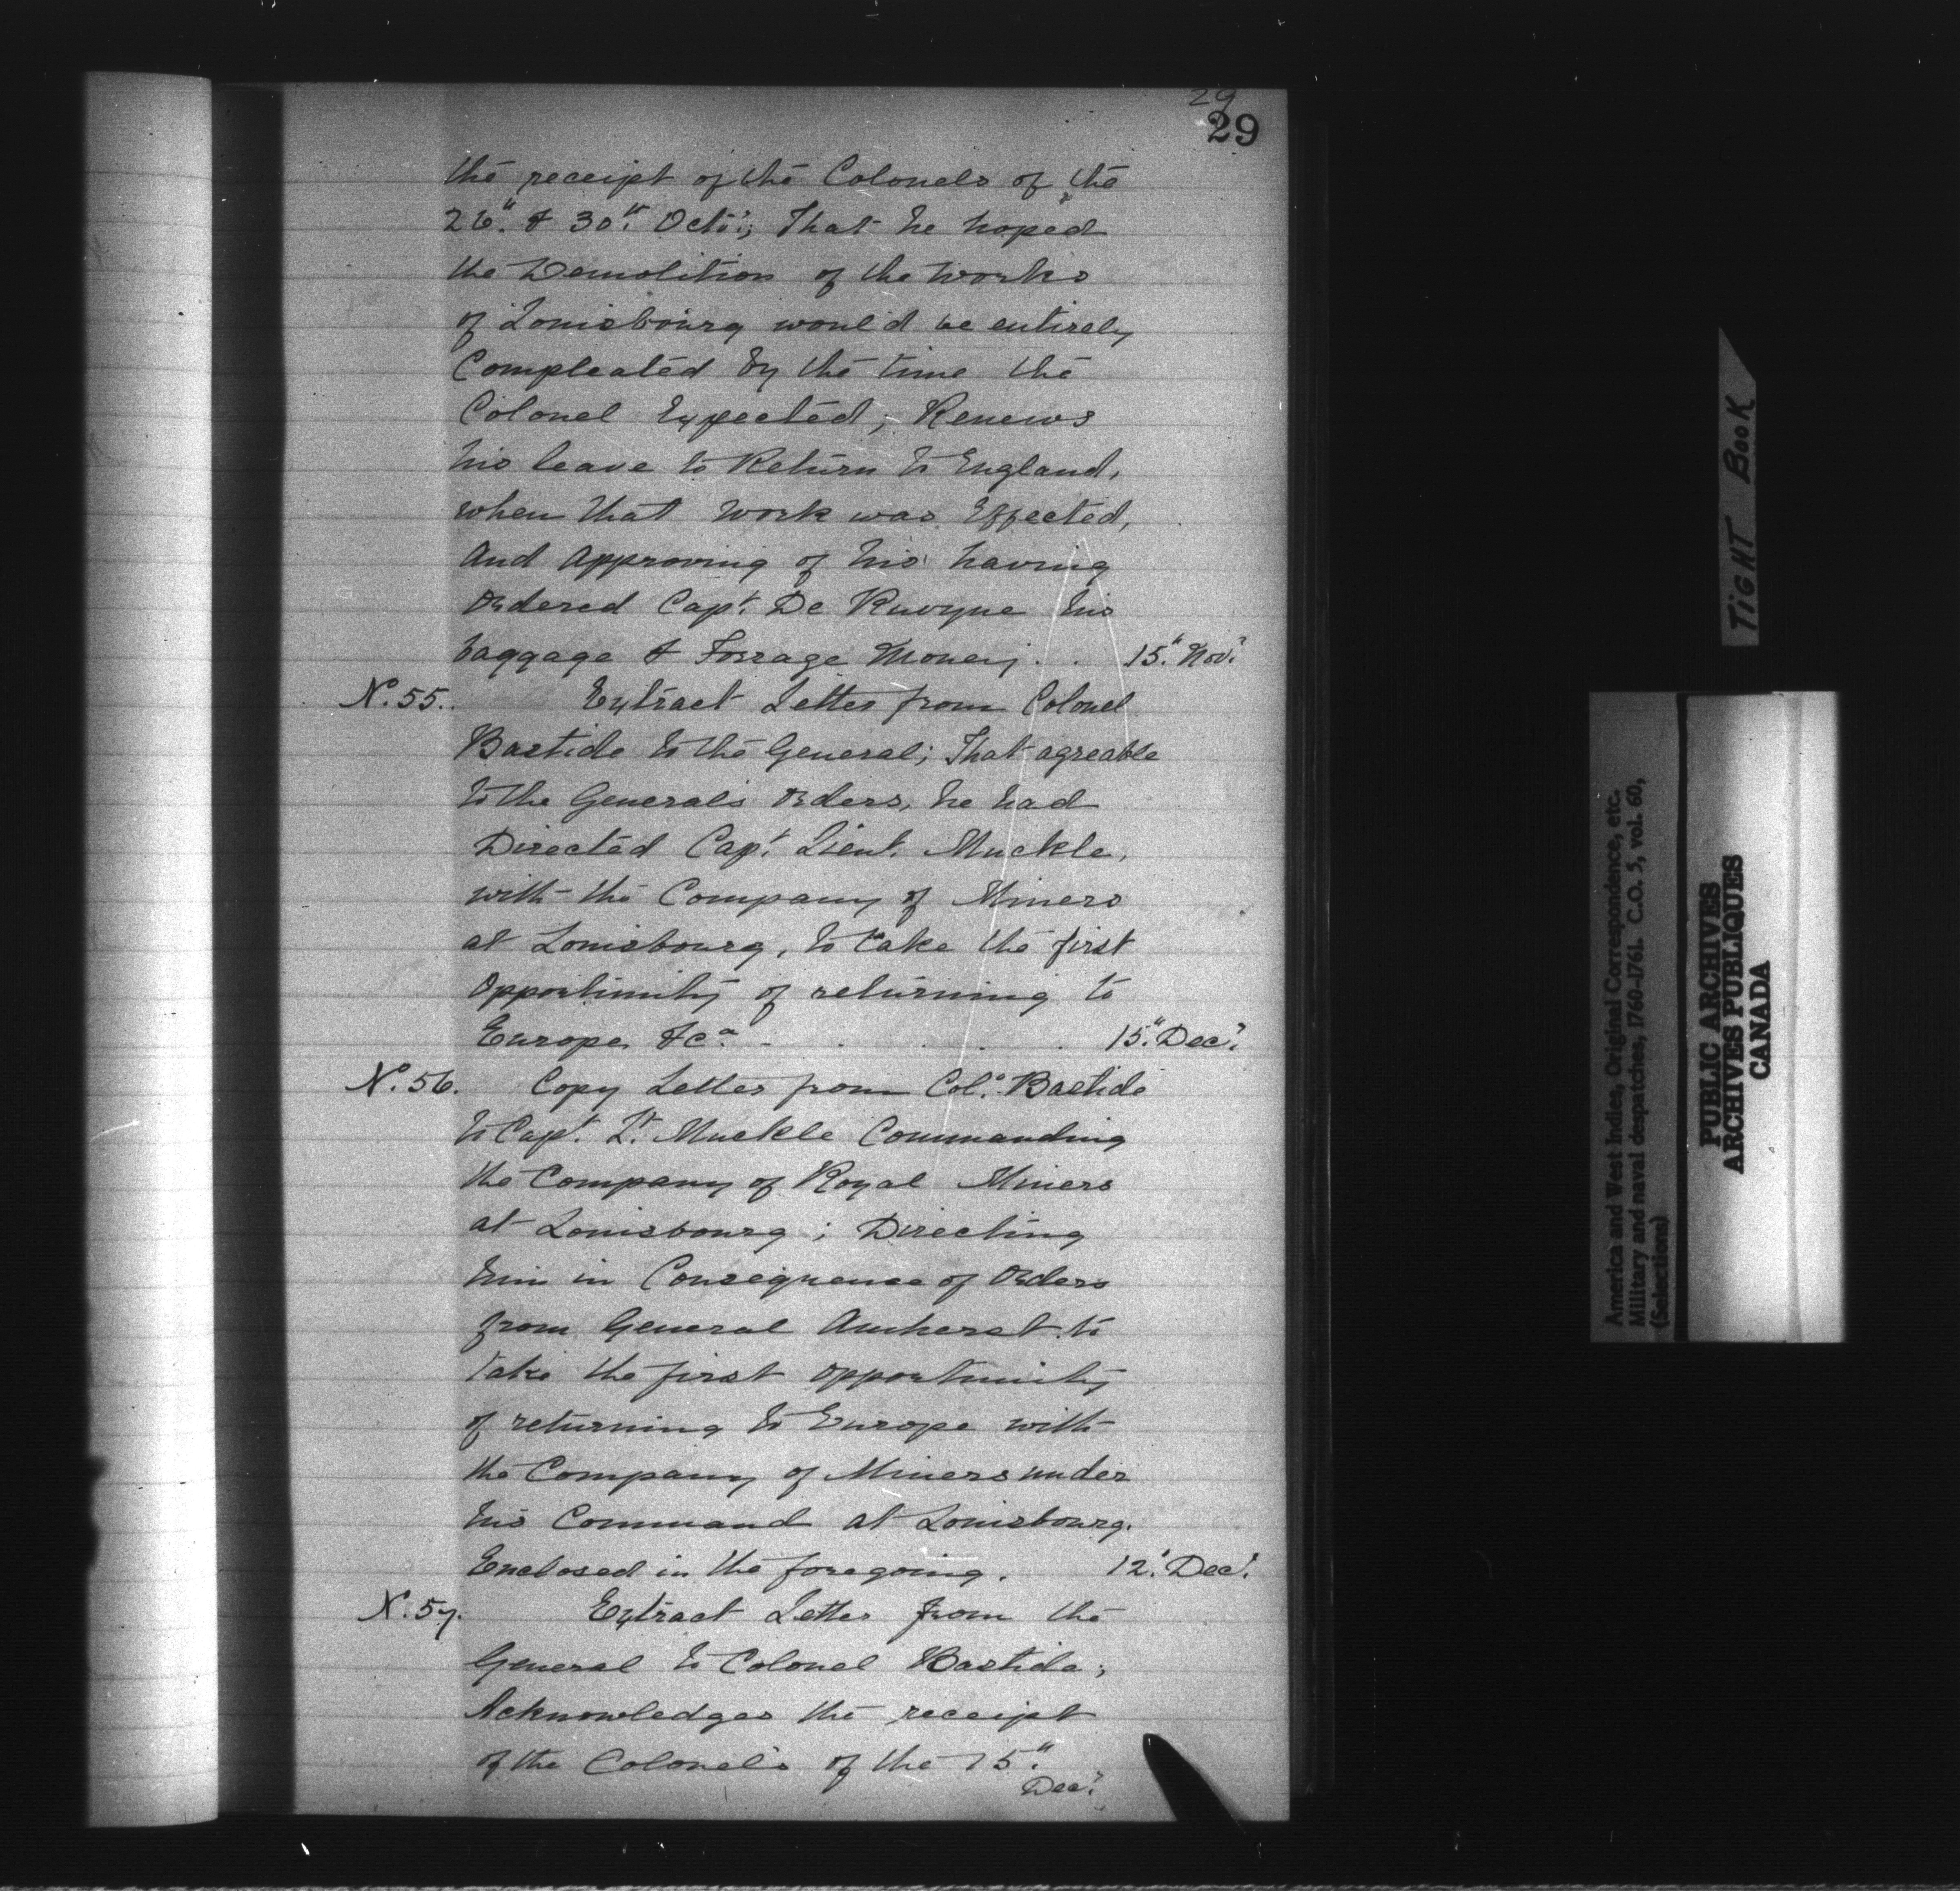 29
29
the receipt of the Colonels of the
26." & 30." Octr; That he hoped
the Demolition of the Works
of Louisbourg would be entirely
Compleated by the time the
Colonel Expected; Renews
his leave to Return to England,
when that Work was Effected,
And Approving of his having
Ordered Capt. De Ruvyne his
baggage & Forrage Money. . 15." Nov.r
N. 55. Extract Letter from Colonel
Bastide to the General; That agreable
to the General's Orders, he had
Directed Capt. Lieut. Muckle,
with the Company of Miners
at Louisbourg, to take the first
Opportunity of returning to
Europe, &c.a - . . . . 15." Dec.r
N. 56. Copy Letter from Col.o Bastide
to Capt. Lt. Muckle Commanding
the Company of Royal Miners
at Louisbourg; Directing
him in Consequence of Orders
from General Amherst to
take the first opportunity
of returning to Europe with
the Company of Miners under
his Command at Louisbourg.
Enclosed in the foregoing. 12." Dec.r
N. 57. Extract Letter from the
General to Colonel Bastide;
Acknowledges the receipt
of the Colonel's of the 15."
Dec.r
TIGHT BOOK
America and West Indies, Original Correspondence, etc.
Military and naval despatches, 1760-1761. C.O. 5, vol. 60,
(Selections)
PUBLIC ARCHIVES
ARCHIVES PUBLIQUES
CANADA